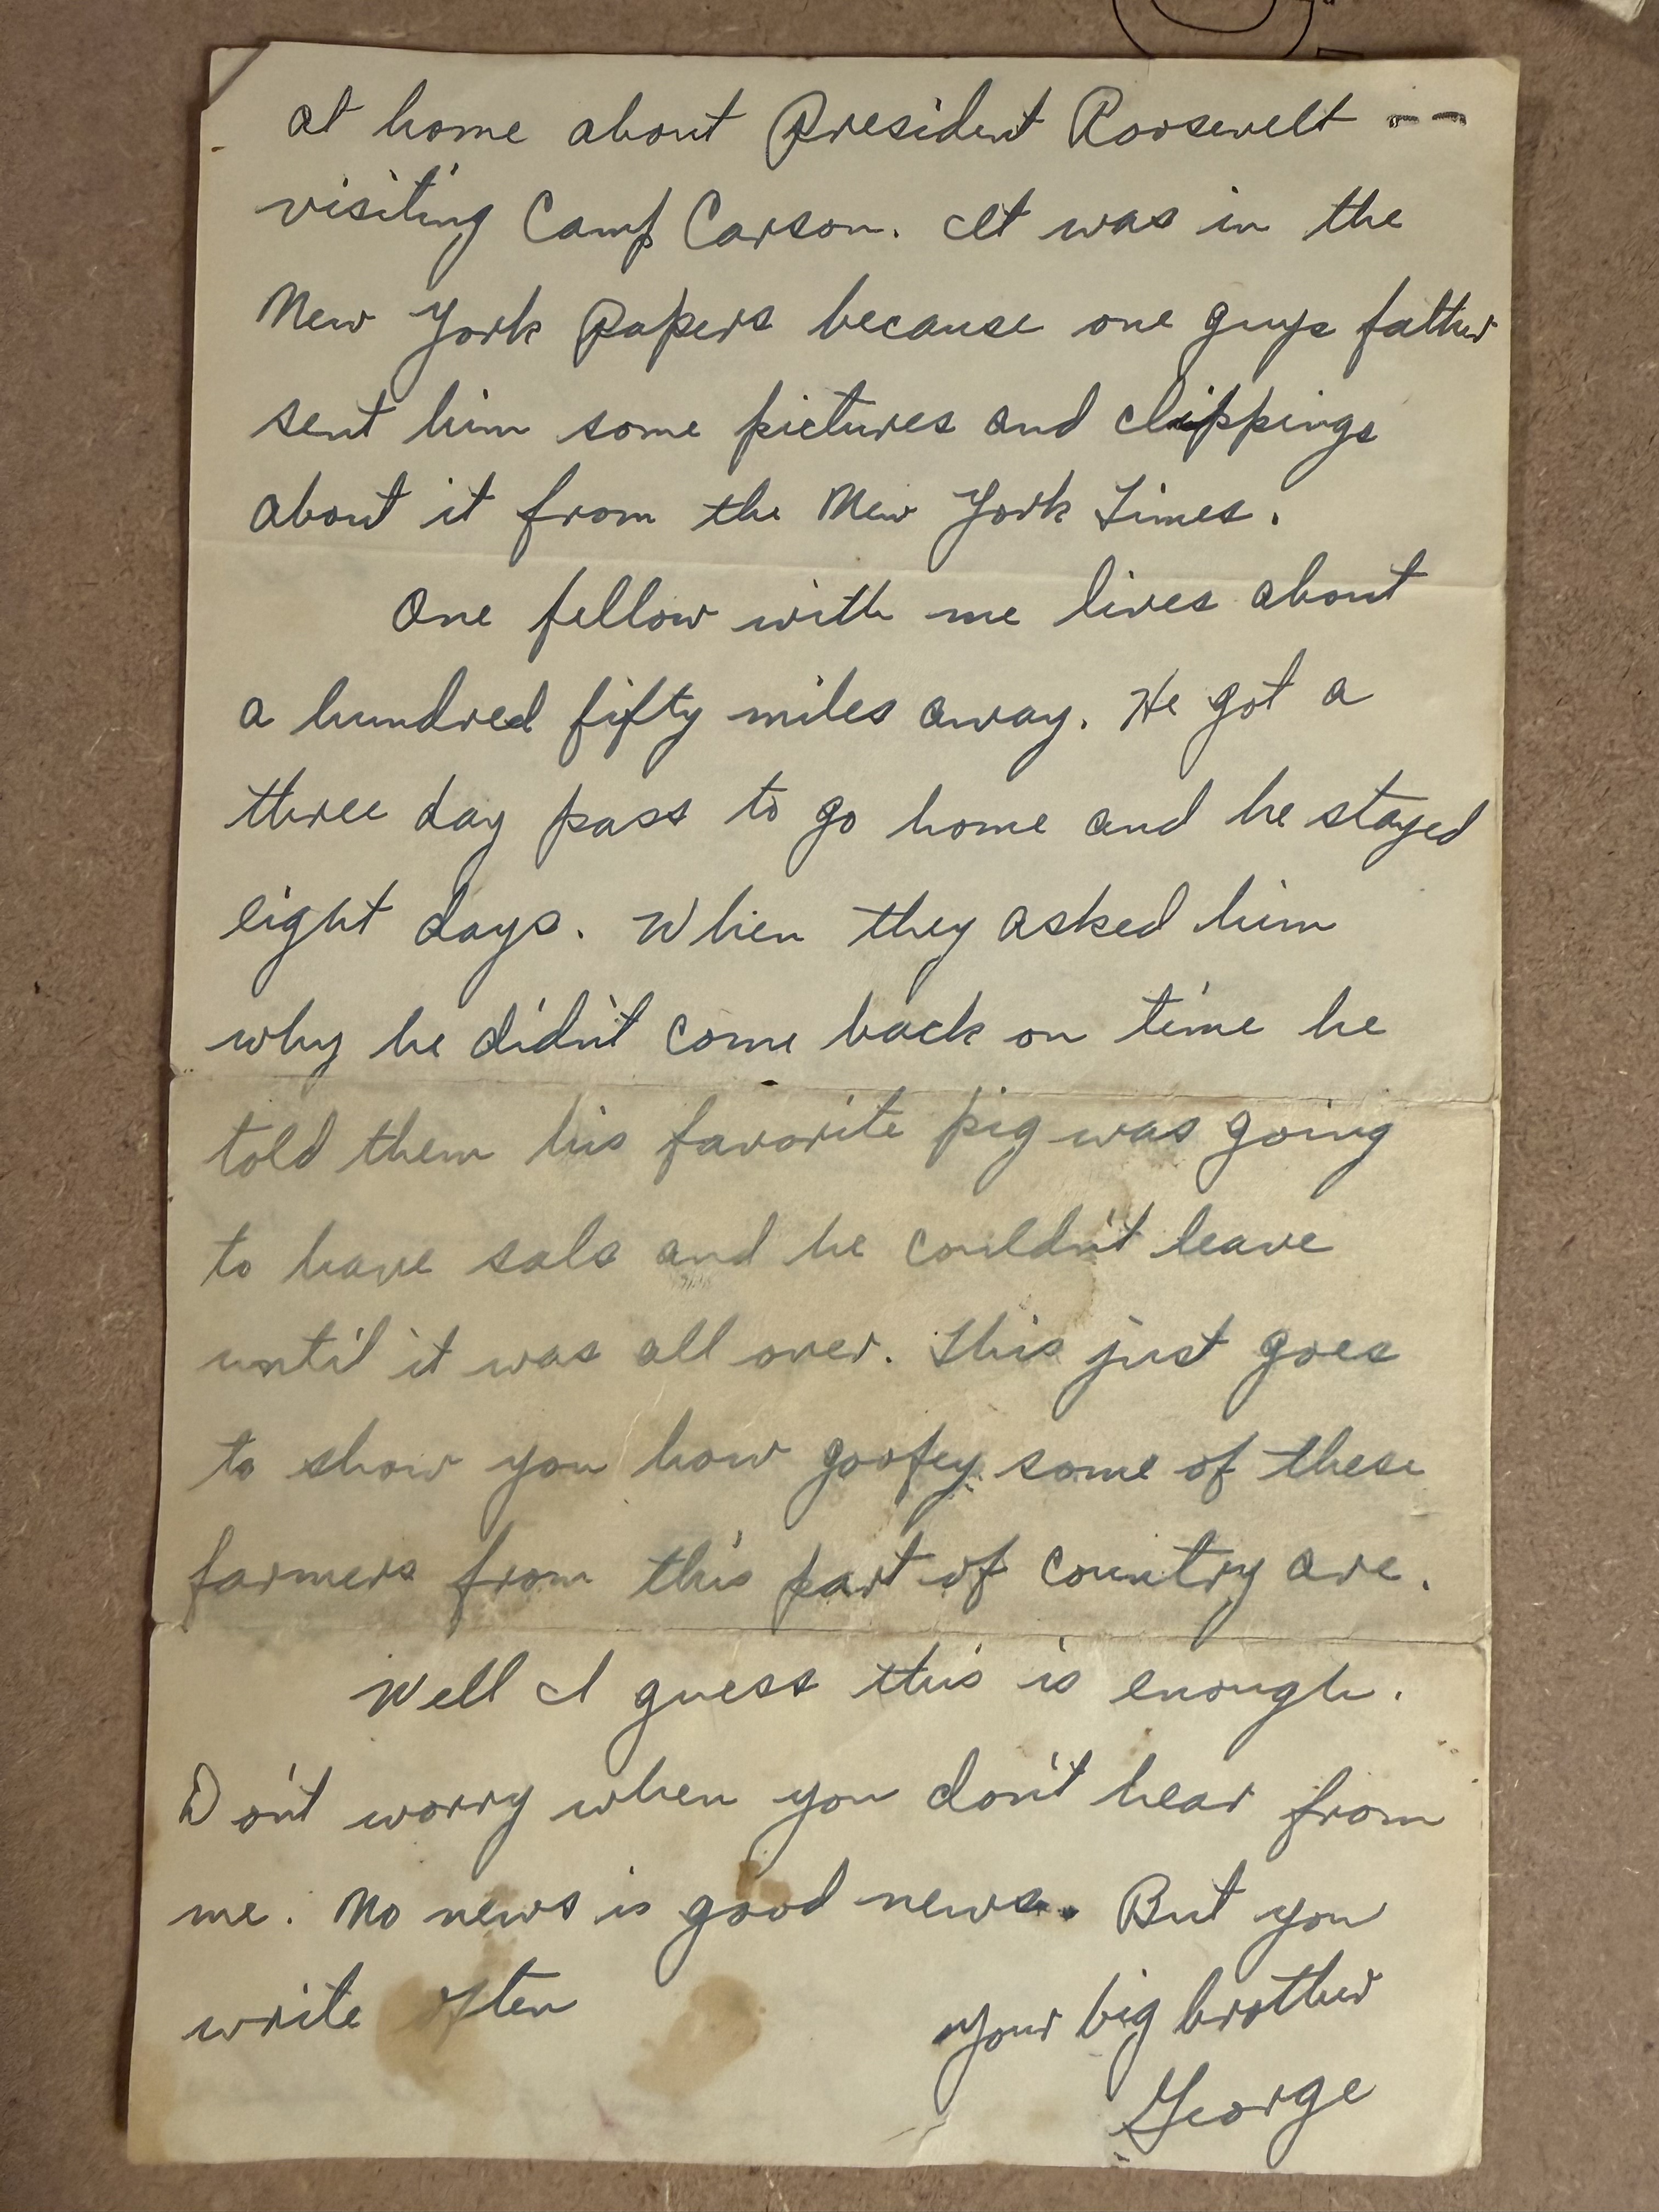 at home about President Roosevelt --
visiting Camp Carson. It was in the
New York Papers because one guys father
sent him some pictures and clippings
about it from the New York Times.
One fellow with me lives about
a hundred fifty miles away. He got a
three day pass to go home and he stayed
eight days. When they asked him
why he didn't come back on time he
told them his favorite pig was going
to have sals and he couldn't leave
until it was all over. This just goes
to show you how goofey some of these
farmers from this part of country are.
Well I guess this is enough.
Don't worry when you don't hear from
me. No news is good news. But you
write often
your big brother
George